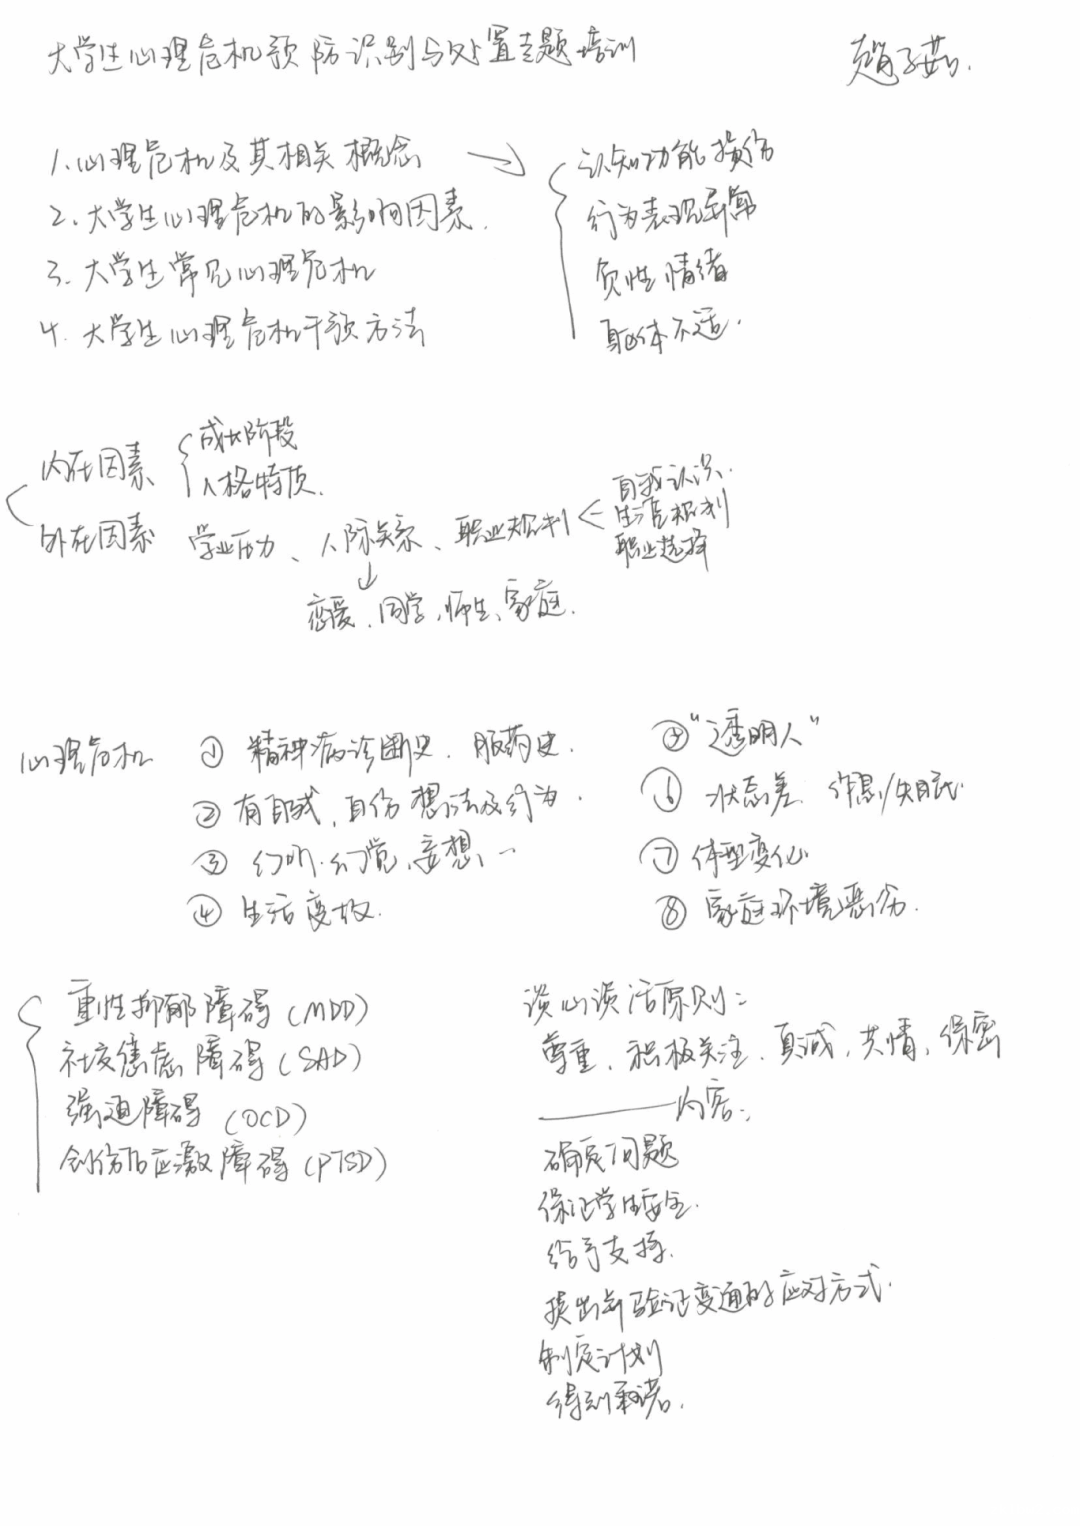 大学生心理危机预防识别与处置专题培训
赵子茹.
1.心理危机及其相关概念 →
2.大学生心理危机的影响因素.
3.大学生常见心理危机
4.大学生心理危机干预方法
认知功能损伤
行为表现异常
负性情绪
躯体不适.
内在因素
成长阶段
人格特质.
外在因素 学业压力、人际关系、职业规划
自我认识.
生涯规划
职业选择
恋爱、同学、师生、家庭.
心理危机
① 精神病诊断史.服药史.
② 有自杀、自伤想法及行为.
③ 幻听.幻觉、妄想、一
④ 生活变故.
⑤ "透明人"
⑥ 状态差 作息/失眠
⑦ 体型变化
⑧ 家庭环境恶劣.
重性抑郁障碍(MDD)
社交焦虑障碍(SAD)
强迫障碍(OCD)
创伤后应激障碍(PTSD)
谈心谈话原则:
尊重、积极关注、真诚、共情、保密
——内容:
确定问题
保证学生安全.
给予支持.
提出并验证变通的应对方式.
制定计划
得到承诺.